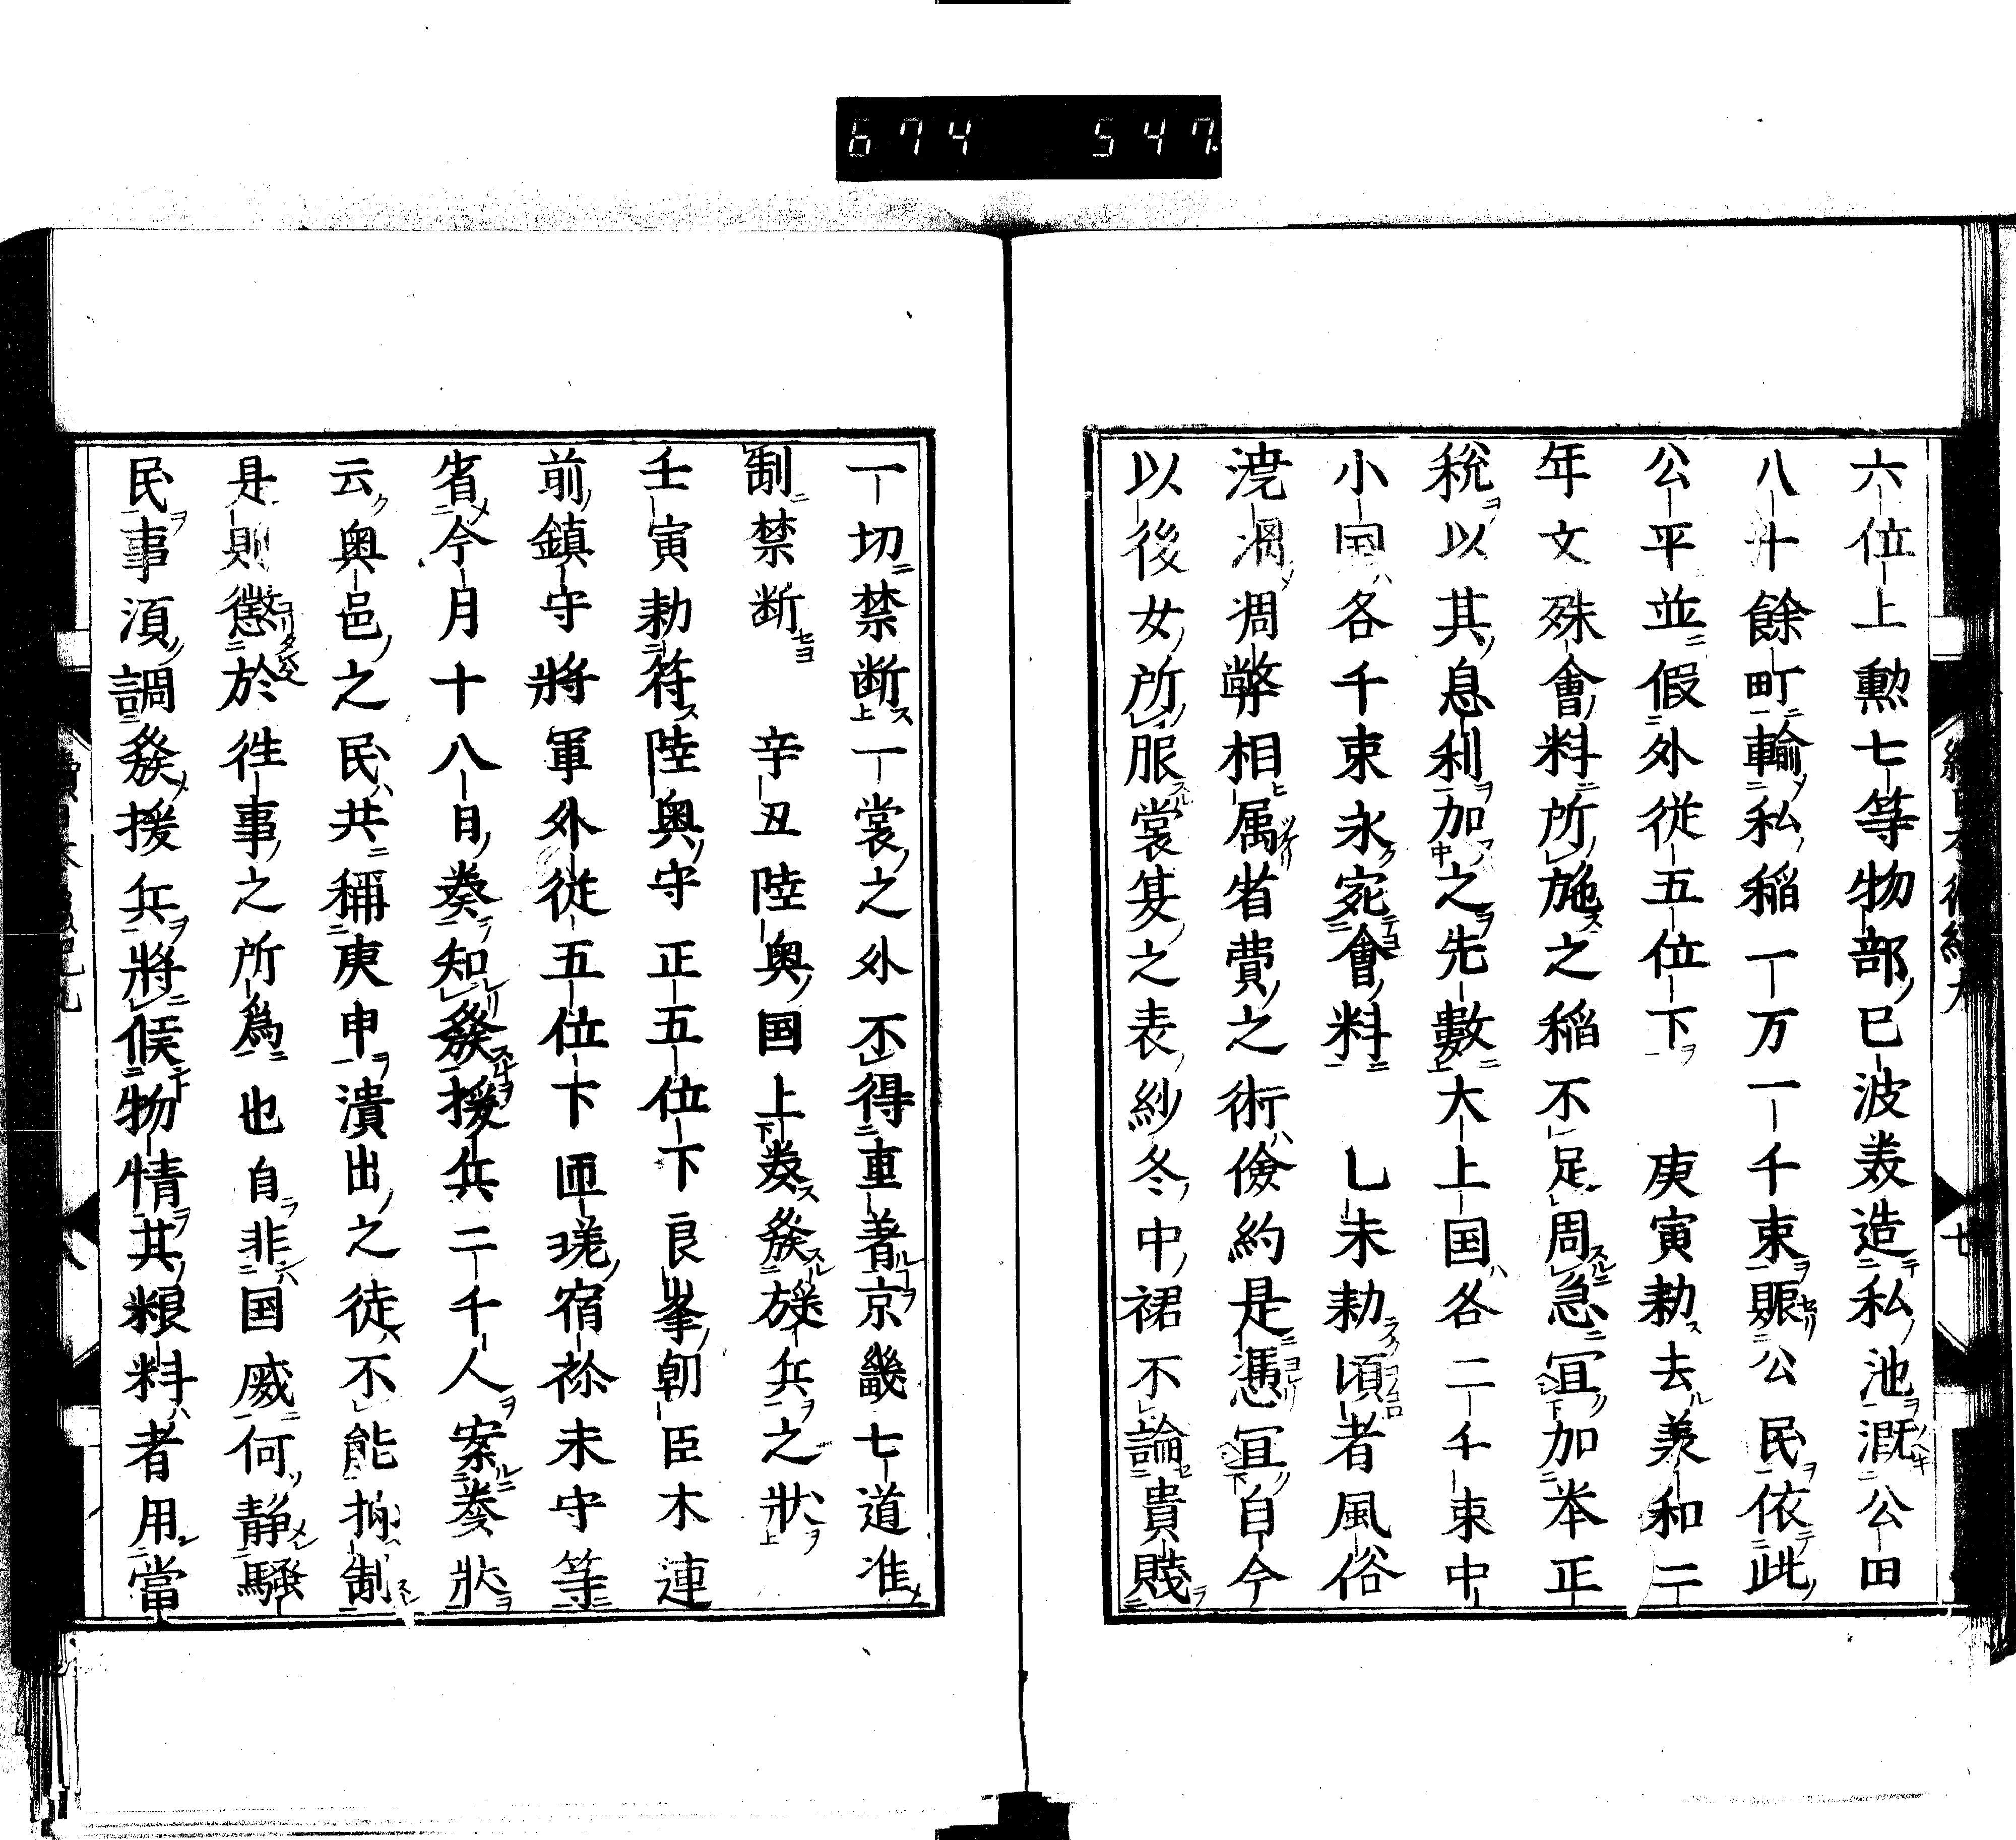 674 547
六位上勲七等物部巳波美造私池漑公田
八十餘町輸私稲一万一千束賑公民依此
公平並假外従五位下 庚寅勅去兼和二
年文殊會料所施之稲不足周急冝加夲正
税以其息利加之先數大上国各二千束中
小国各千束永宛會料 乚未勅頃者風俗
澆凋凋弊相属省費之術儉約是憑冝自今
以後女所服裳夏之表紗冬中裙不論貴賤
一切禁断一裳之外不得重著京畿七道准
制禁断 辛丑陸奥国上奏發援兵之狀
壬寅勅符陸奥守正五位下良峯朝臣木連
前鎮守將軍外従五位下匝瑳宿祢末守等
省今月十八日奏知發援兵二千人案奏狀
云奥邑之民共稱庚申潰出之徒不能抑制
是則懲於徃事之所為也自非国威何静騒
民事湏調發援兵將候物情其粮料者用當